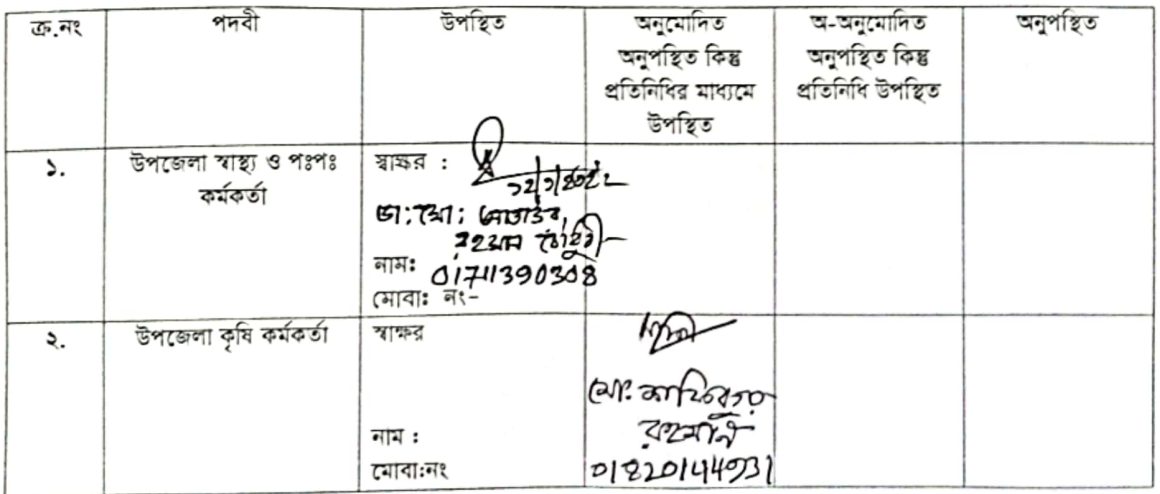 ক্র.নং পদবী উপস্থিত অনুমোদিত অনুপস্থিত কিন্তু প্রতিনিধির মাধ্যমে উপস্থিত অ-অনুমোদিত অনুপস্থিত কিন্তু প্রতিনিধি উপস্থিত অনুপস্থিত
১. উপজেলা স্বাস্থ্য ও পঃপঃ কর্মকর্তা
স্বাক্ষর :
ডা: মো:
রহমান চৌধুরী
নাম: 01711390308
মোবা: নং-
২. উপজেলা কৃষি কর্মকর্তা
স্বাক্ষর
মো:
রহমান
নাম :
মোবা:নং